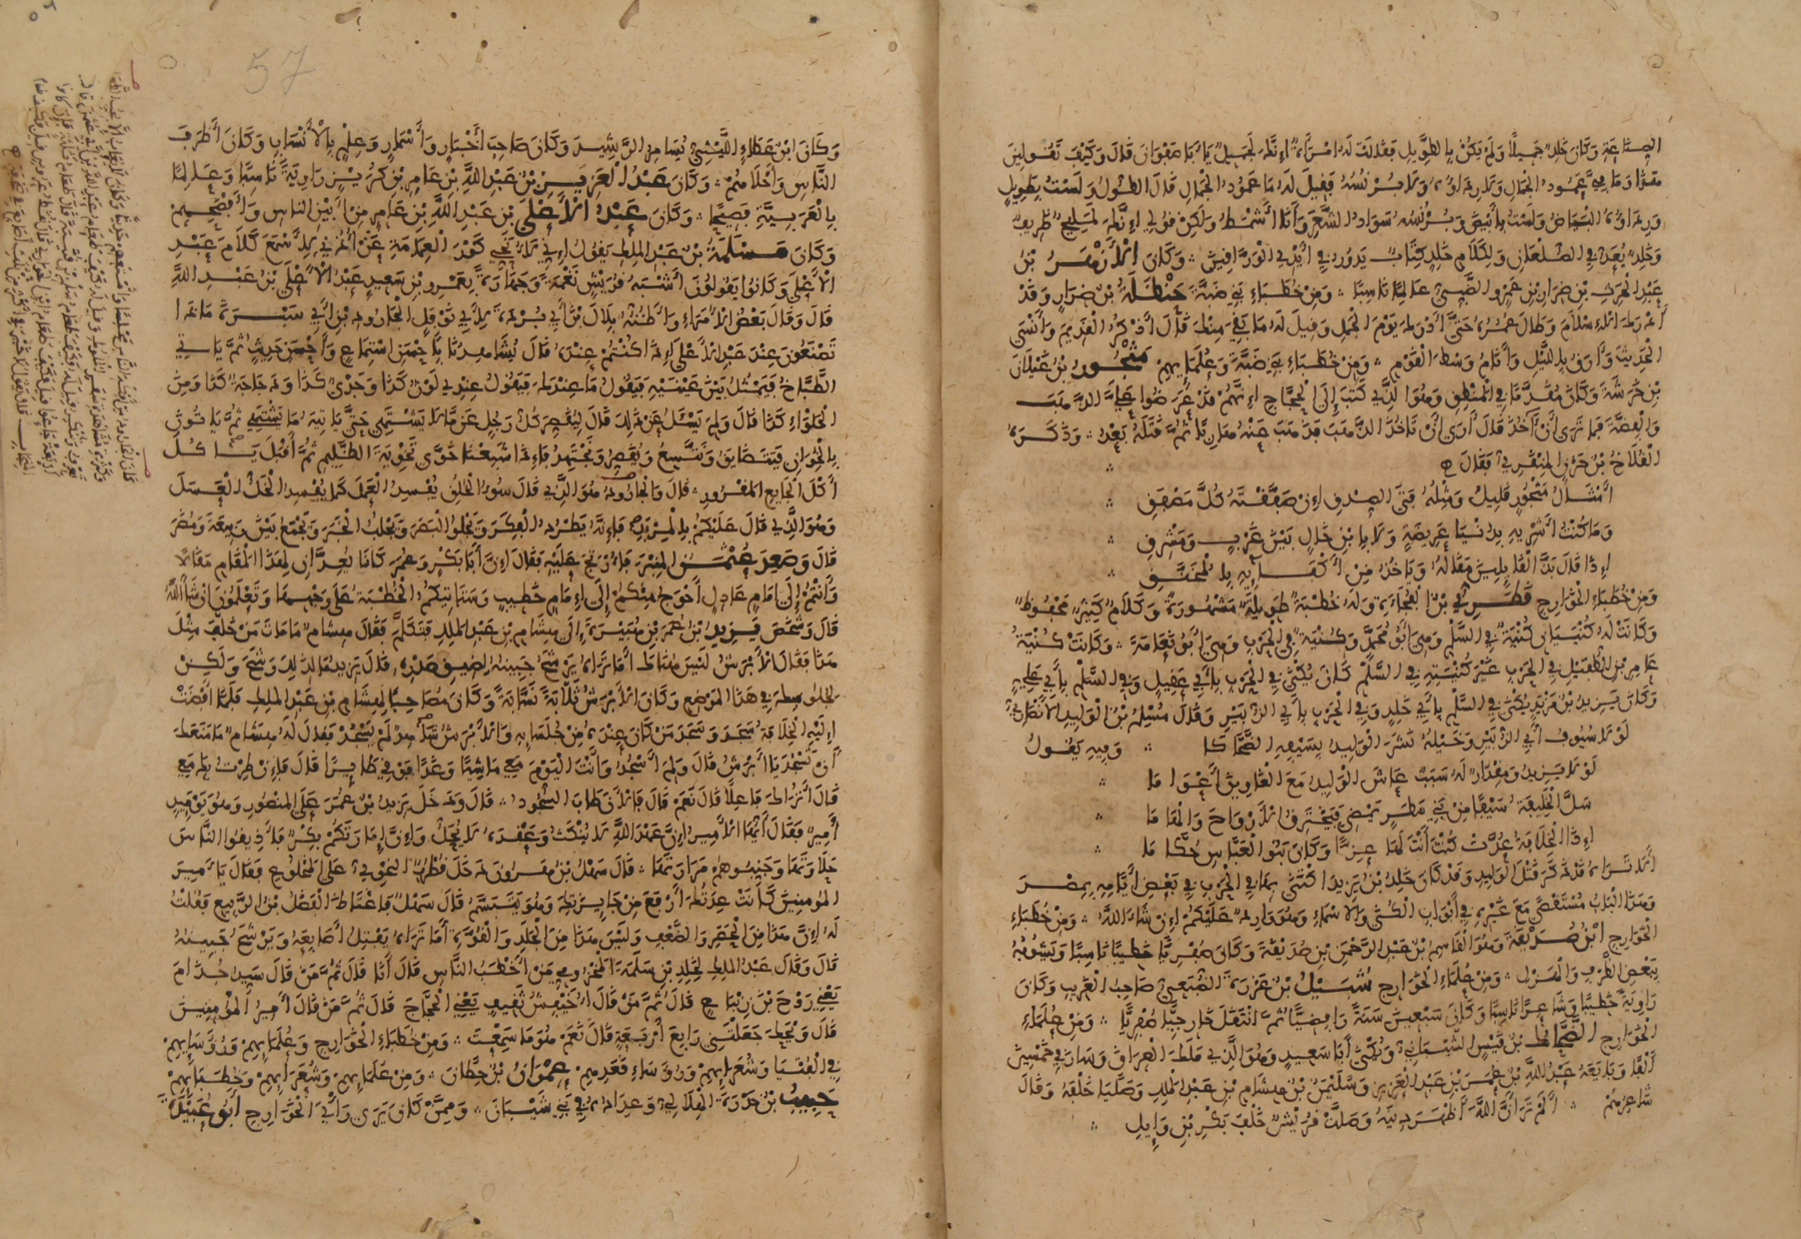 الصناعة وكان خلد جميلا ولم يكن بالطويل فقالت له امرأة انك لجميل يا با صفوان قال وكيف تقولين
هذا وما في عمود الجمال ولا رداؤه ولا برنسه فقيل له ما عمود الجمال قال الطول ولست بطويل
ورداؤه البياض ولست بأبيض وبرنسه سواد الشعر وأنا أشمط ولكن قولي انك لمليح ظريف
وخلد يعد في الصلعان ولكلام خلد كتاب يدور في أيدي الوراقين وكان الأزهر بن
عبد الحرث بن ضرار بن عمرو الضبي عالما ناسبا ومن خطباء بني ضبة حنظلة بن ضرار وقد
أدرك الإسلام وطال عمره حتى أدرك يوم الجمل وقيل له ما بقي منك قال أذكر القديم وأنسى
الحديث وآرق بالليل وأنام وسط القوم ومن خطباء بني ضبة وعلمايهم منجور بن غيلان
بن خرشة وكان مقدما في المنطق وهو الذي كتب إلى الحجاج انهم قد عرضوا علي الذهب
والفضة فما ترى أن آخذ قال أرى أن تأخذ الذهب فذهب عنه هاربا ثم قتله بعد وذكره
القلاخ بن حزن المنقري فقال
أمثال منجور قليل ومثله فتى الصدق إن صفقته كل مصفق
وما كنت أشريه بدنيا عريضة ولا بابن خال بين غرب ومشرق
إذا قال بذ القايلين مقاله وياخذ من أكفايه بالمخنق
ومن خطباء الخوارج قطري بن الفجاءة وله خطبة طويلة مشهورة وكلام كثير محفوظ
وكانت له كنيتان كنية في السلم وهي أبو محمد وكنية في الحرب وهي أبو نعامة وكانت كنية
عامر بن الطفيل في الحرب غير كنيته في السلم كان يكنى في الحرب بأبي عقيل وفي السلم بأبي علي
وكان يزيد بن مزيد يكنى في السلم بأبي خلد وفي الحرب بأبي الزبير وقال مسلم بن الوليد الأنصاري
لولا سيوف أبي الزبير وخيله نشر الوليد بسيفه الضحاكا وفيه يقول
لولا يزيد ومقدار له سبب عاش الوليد مع الغاوين أعواما
سل الخليفة سيفا من بني مطر يمضي فيخترق الأرواح والهاما
إذا الخلافة عدت كنت أنت لها عزا وكان بنو العباس حكاما
ألا تراه قد ذكر قتل الوليد وقد كان خلد بن يزيد اكتنى بها في الحرب في بعض أيامه بمصر
وهذا الباب مستقصى مع غيره في أبواب الكنى والأسماء وهو وارد عليكم إن شاء الله ومن خطباء
الخوارج ابن صديقة وهو القاسم بن عبد الرحمن بن صديقة وكان صفريا خطيبا ناسبا ويشوبه
ببعض الظرف والهزل ومن علماء الخوارج شبيل بن عزرة الضبعي صاحب الغريب وكان
راوية خطيبا وشاعرا ناسبا وكان سبعين سنة رافضيا ثم انتقل خارجيا صفريا ومن علماء
الخوارج الضحاك بن قيس الشيباني ويكنى أبا سعيد وهو الذي ملك العراق وسار في خمسين
ألفا وبايعه عبد الله بن عمر بن عبد العزيز وسليمن بن هشام بن عبد الملك وصليا خلفه وقال
شاعرهم ألم تر أن الله أظهر دينه وصلت قريش خلف بكر بن وايل
57
وكان ابن عطاء الليثي يسامر الرشيد وكان صاحب أخبار وأسمار وعلم بالأنساب وكان أظرف
الناس وأحلاهم وكان عبد العزيز بن عبد الله بن عامر بن كريز راوية ناسبا وعالما
بالعربية فصيحا وكان عبد الأعلى بن عبد الله بن عامر من أبين الناس وأفصحهم
وكان مسلمة بن عبد الملك يقول إني لأنحي كور العمامة عن أذني لأسمع كلام عبد
الأعلى وكانوا يقولون أشبه قريش نغمة وجهارة بعمرو بن سعيد عبد الأعلى بن عبد الله
قال وقال بعض الأمراء وأظنه بلال بن أبي بردة لأبي نوفل الجارود بن أبي سبرة ماذا
تصنعون عند عبد الأعلى إذا كنتم عنده قال يشاهدنا بأحسن استماع وأحسن حديث ثم ياتي
الطباخ فيمثل بين عينيه فيقول ما عندك فيقول عندي لون كذا وجدي كذا ودجاجة كذا ومن
الحلواء كذا قال ولم يسئل عن ذلك قال ليقصر كل رجل عما لا يشتهي حتى ياتيه ما يشتهي ثم ياتون
بالخوان فيتضايق ونتسع ويقصر ونجتهد فإذا شبعنا خوى تخوية الظليم ثم أقبل يأكل
أكل الجايع المقرور قال والجارود هو الذي قال سوء الخلق يفسد العمل كما يفسد الخل العسل
وهو الذي قال عليكم بالمربد فإنه يطرد الفكر ويجلو البصر ويجلب الخبر ويجمع بين ربيعة ومضر
قال وصعد عثمن المنبر فأرتج عليه فقال إن أبا بكر وعمر كانا يعدان لهذا المقام مقالا
وأنتم إلى إمام عادل أحوج منكم إلى إمام خطيب وستاتيكم الخطبة على وجهها وتعلمون إن شاء الله
قال وشخص يزيد بن عمر بن هبيرة إلى هشام بن عبد الملك فتكلم فقال هشام ما مات من خلف مثل
هذا فقال الأبرش ليس هناك أما تراه يرشح جبينه لضيق صدره قال يزيد ما لذلك رشح ولكن
لجلوسك في هذا الموضع وكان الأبرش ثلابة نسابة وكان مصاحبا لهشام بن عبد الملك فلما أفضت
إليه الخلافة سجد وسجد من كان عنده من جلسايه والأبرش شاهد لم يسجد فقال له هشام ما منعك
أن تسجد يا أبرش قال ولم أسجد وأنت اليوم معي ماشيا وغدا فوقي طايرا قال فإن طرت بك معي
قال أتراك فاعلا قال نعم قال فالآن طاب السجود قال ودخل يزيد بن عمر على المنصور وهو يوميذ
أمير فقال أيها الأمير إن عهد الله لا ينكث وعقده لا يحل وإن إمارتكم بكر فأذيقوا الناس
حلاوتها وجنبوهم مرارتها قال سهل بن هرون دخل قطرب النحوي على المخلوع فقال يا أمير
المومنين كانت عدتك أرفع من جايزتك وهو يتبسم قال سهل فاغتاظ الفضل بن الربيع فقلت
له إن هذا من الحصر والضعف وليس هذا من الجلد والقوة أما تراه يفتل أصابعه ويرشح جبينه
قال وقال عبد الملك لخلد بن سلمة المخزومي من أخطب الناس قال أنا قال ثم من قال سيد جذام
يعني روح بن زنباع قال ثم من قال أخيفش ثقيف يعني الحجاج قال ثم من قال أمير المؤمنين
قال ويحك جعلتني رابع أربعة قال نعم هو ما سمعت ومن خطباء الخوارج وعلمايهم ورؤسايهم
في الفتيا وشعرايهم ورؤساء قعدهم عمران بن حطان ومن علمايهم وشعرايهم وخطبايهم
حبيب بن خدرة الهلالي وعداده في بني شيبان وممن كان يرى رأي الخوارج أبو عبيدة